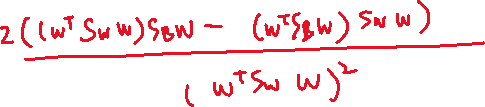 2((wᵀS_W W)S_B W − (wᵀS_B W) S_W W)
(wᵀS_W W)²